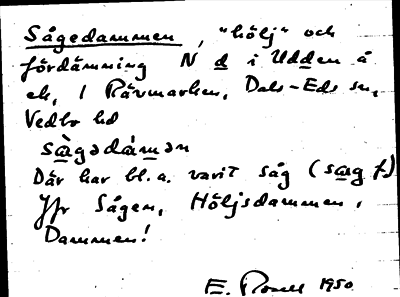 Sågedammen, "hölj" och
fördämning N d i Udden å
ek, i Rävmarken, Dals-Eds sn,
Vedbo hd
sàgədámən
Där har bl.a. varit såg (sag f.)
Jfr Sågen, Höljsdammen,
Dammen!
E. 1950